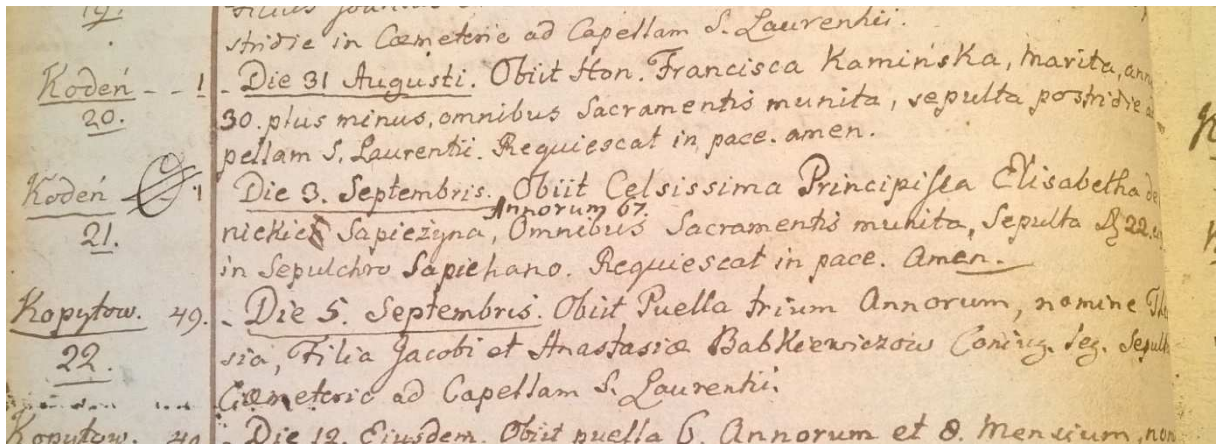 19.
Filius Joannis
stridie in Cœmeterio ad Capellam S. Laurentii.
Kodeń - - 1 - Die 31 Augusti. Obiit Hon. Francisca Kamińska, marita, ann
20. 30. plus minus, omnibus Sacramentis munita, sepulta postridie a
pellam S. Laurentii. Requiescat in pace. amen.
Kodeń - 1 - Die 3. Septembris. Obiit Celsissima Principissa Elisabetha de
Annorum 67.
21. nickich Sapieżyna, Omnibus Sacramentis munita, Sepulta 22.
in Sepulchro Sapiehano. Requiescat in pace. Amen.
Kopytow. 49. - Die 5. Septembris. Obiit Puella trium Annorum, nomine
22. sia, Filia Jacobi et Anastasiæ Babkiewiczow Coniug. leg. Sepult
Cœmeterio ad Capellam S. Laurentii.
Kopytow. 40 - Die 12. Eiusdem. Obiit puella 6. Annorum et 8. Mensium, nom